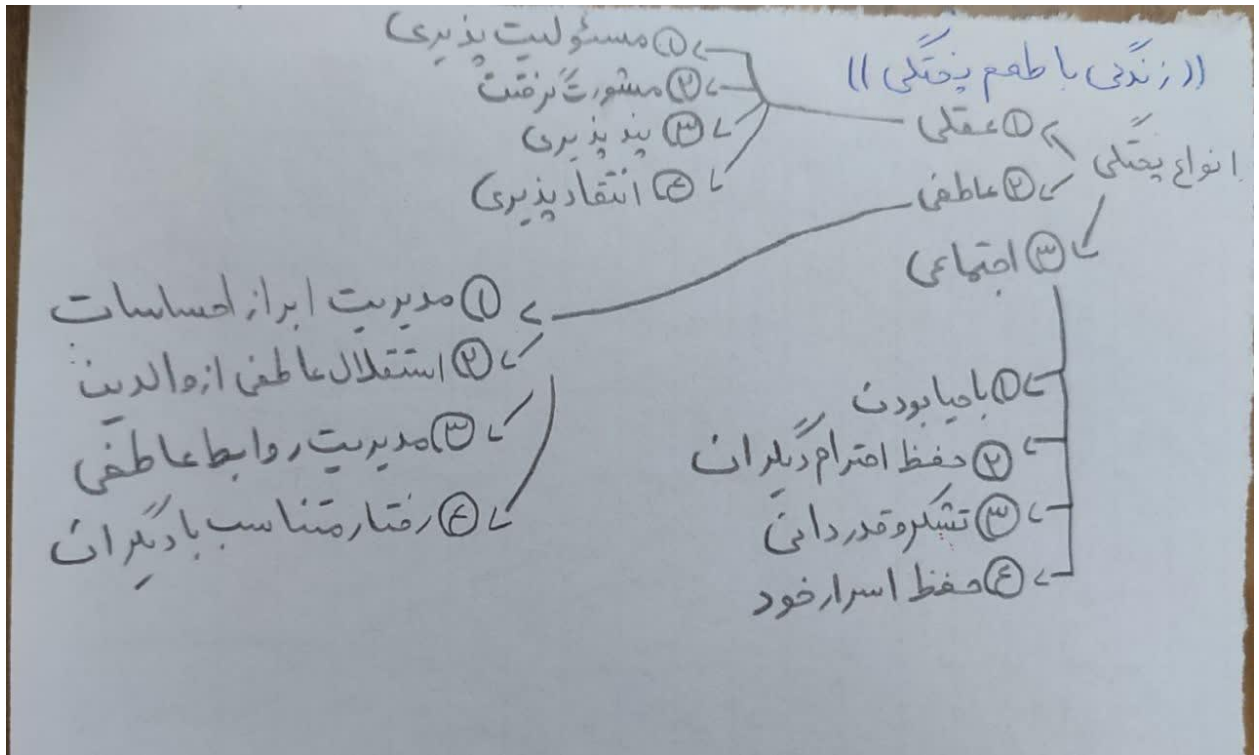 ((زندگی با طعم پختگی))
انواع پختگی
① عقلی
② عاطفی
③ اجتماعی
① مسئولیت پذیری
② مشورت گرفتن
③ پند پذیری
④ انتقاد پذیری
① مدیریت ابراز احساسات
② استقلال عاطفی از والدین
③ مدیریت روابط عاطفی
④ رفتار متناسب با دیگران
① باحیا بودن
② حفظ احترام دیگران
③ تشکر و قدردانی
④ حفظ اسرار خود